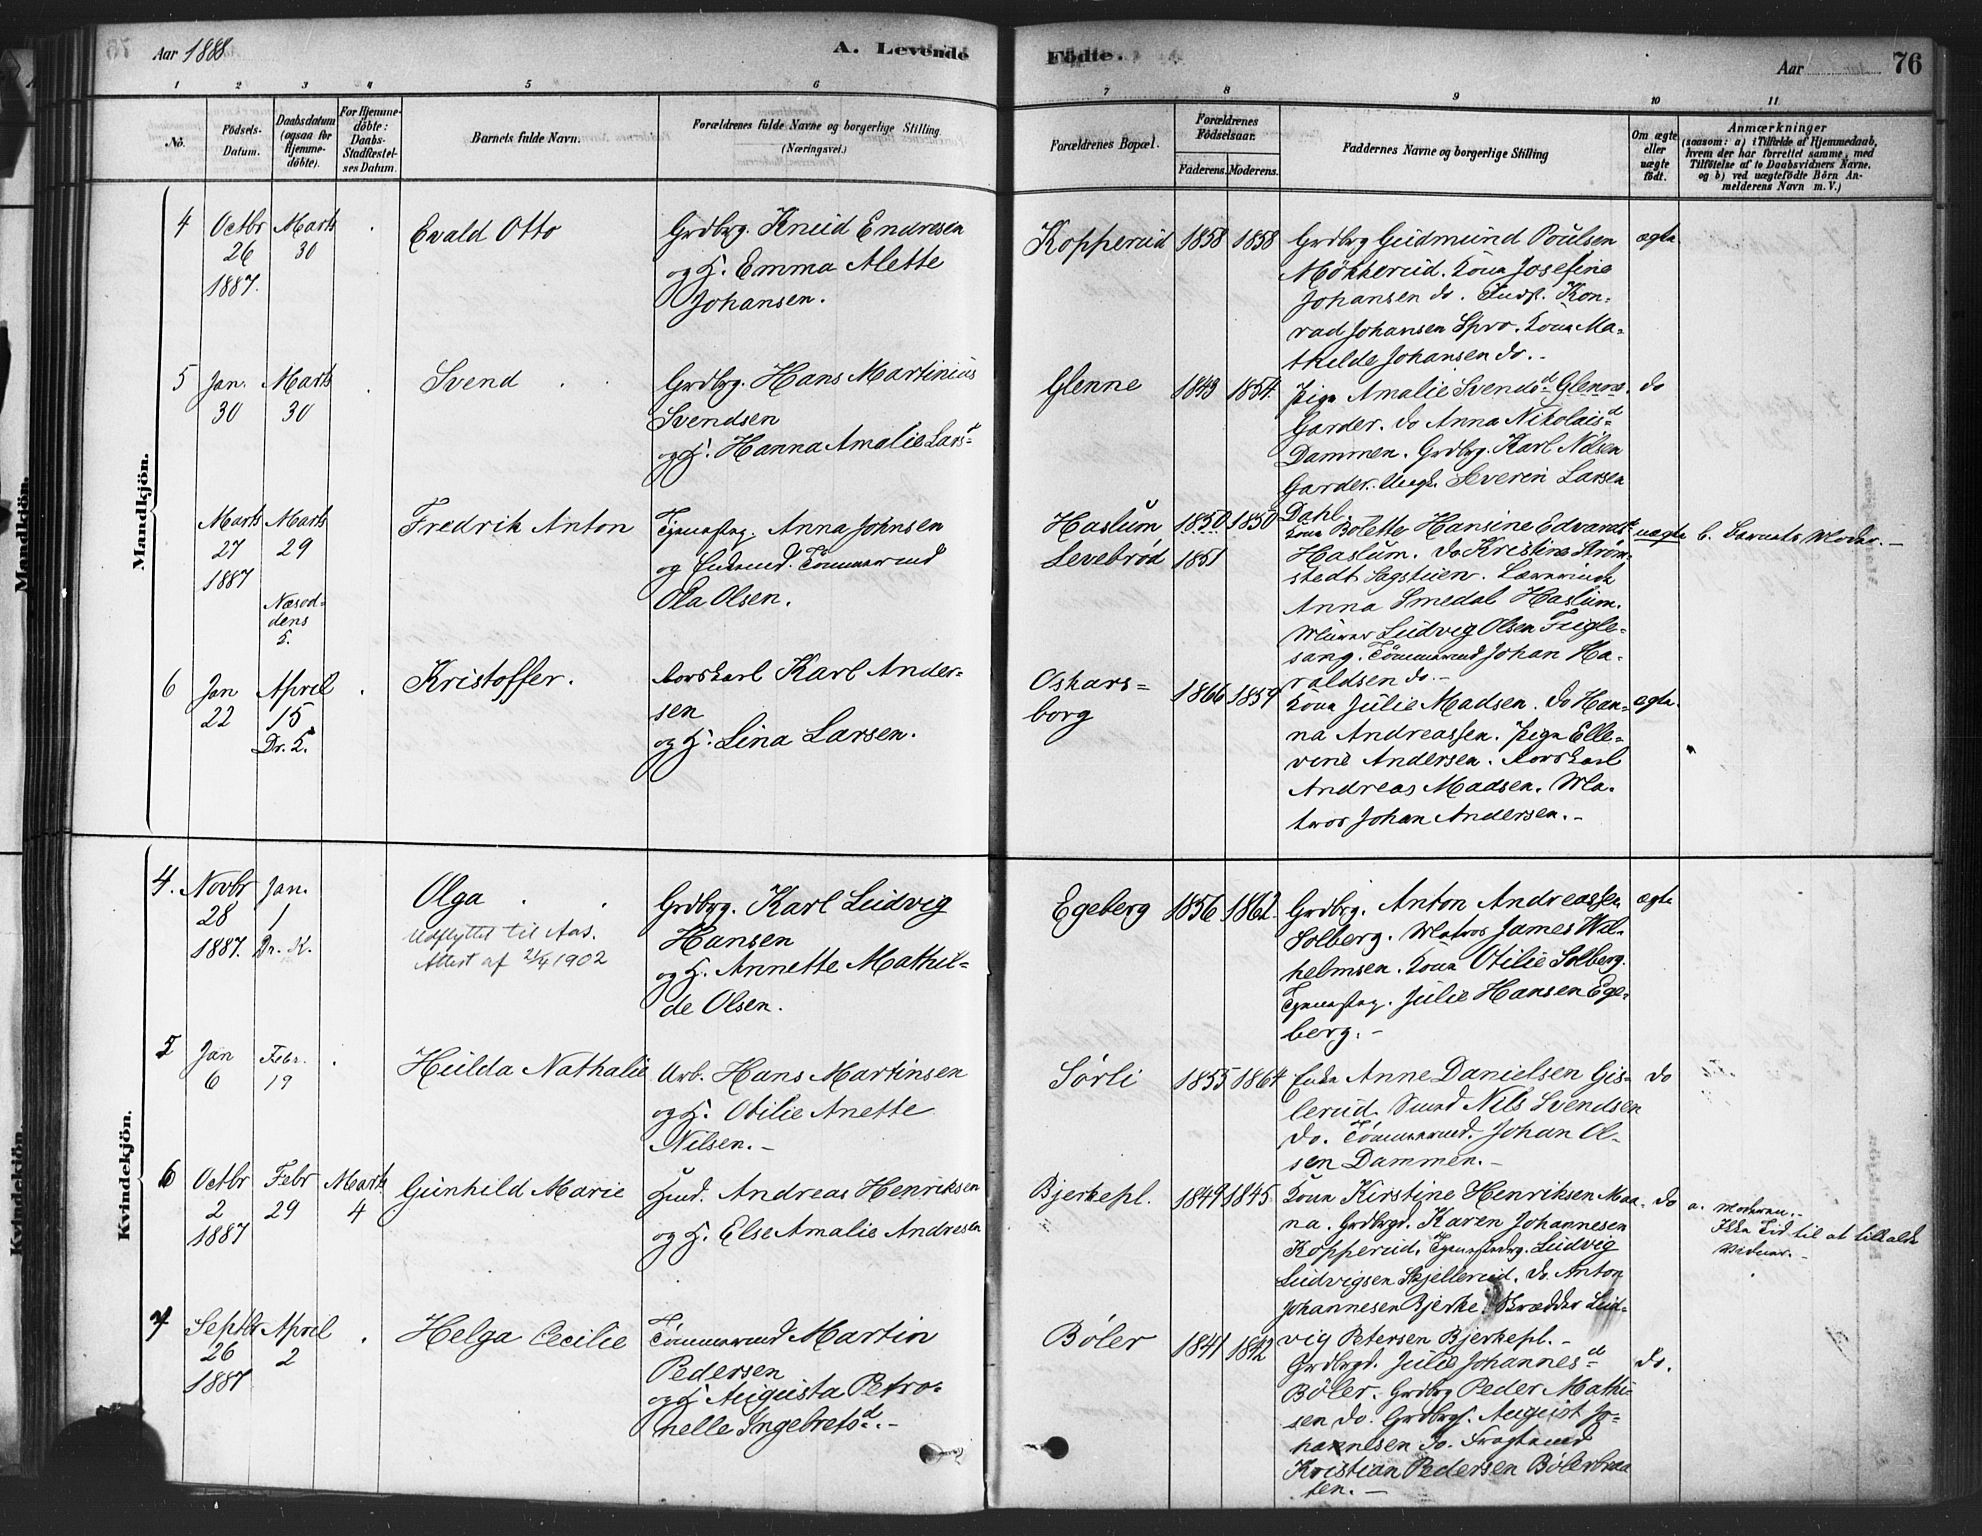 Aar 1888
A. Levende
Födte.
Aar
76
1 2 3 4 5 6 7 8 9 10 11
No.
Födsels-Datum.
Daabsdatum (ogsaa for Hjemme-döbte).
For Hjemme-döbte: Daabs-Stadfæstel-ses Datum.
Barnets fulde Navn.
Forældrenes fulde Navne og borgerlige Stilling.
(Næringsvei.)
Forældrenes Bopæl.
Forældrenes Födselsaar.
Faderens. Moderens.
Faddernes Navne og borgerlige Stilling
Om ægte eller uægte födt.
Anmærkninger
(saasom: a) i Tilfælde af Hjemmedaab,
hvem der har forrettet samme, med
Tilföielse af to Daabsvidners Navne,
og b) ved uægtefödte Börn An-
melderens Navn m. V.)
Mandkjön.
4 Octbr 26 1887. Marts 30
Evald Otto
Grdbrg. Knud Endresen
og H. Emma Alette
Johansen.
Kopperud 1858 1858
Grdbrg Gudmund Poulsen
Mökkerud. Kona Josefine
Johansen do. Inds. Kon-
rad Johansen Spro. Kona Ma-
thilde Johansen do.-
ægte
5 Jan. 30 Marts 30
Svend
Grdbrg. Hans Martinius
Svendsen
og H. Hanna Amalie Larsd
Glenne 1843 1854.
Pige Amalie Svendsd Glenne.
Garder. do Anna Nikolaisd
Dammen. Grdbrg. Karl Nilsen
Garder. Ungk. Severin Larsen
Dahl.
do
Marts 27 1887 Marts 29 Næsod-dens K.
Fredrik Anton
Tjenestpg. Anna Johnsen
og Enkemd. Tömmermd
Ola Olsen.
Haslum 1850 1850
Levebröd 1851
Kona Bolette Hansine Edvardsd
Haslum. do Kristine Ström-
stedt Sagstuen. Lærerinde
Anna Smedal Haslum.
Murer Ludvig Olsen Fugle-
sang. Tömmermd Johan Ha-
raldsen do.-
uægte b. Barnets Moder.-
6 Jan 22 April 15 Dr. K.
Kristoffer.
Korskarl Karl Ander-
sen
og H. Lina Larsen.
Oskars=
borg
1866 1859
Kona Julie Madsen. do Han-
na Andreassen. Pige Elle-
vine Andersen. Korskarl
Andreas Madsen. Ma-
tros Johan Andersen.-
ægte.
Kvindekjön.
4. Novbr 28 1887. Jan. 1 Dr. K.
Olga
Udflyttet til Aas.
Attest af 2/4 1902
Grdbrg. Karl Ludvig
Hansen
og H. Annette Mathil-
de Olsen.
Egeberg 1856 1862.
Grdbrg. Anton Andreassen
Solberg. Matros James Wil-
helmsen. Kona Otilie Solberg.
Tjenestpg. Julie Hansen Ege-
berg.-
ægte
5 Jan 6 Febr. 19
Hulda Nathalie
Arb. Hans Martinsen
og H. Otilie Anette
Nilsen.-
Sörli 1855 1864
Enke Anne Danielsen Gis-
lerud. Smed Nils Svendsen
do. Tömmermd. Johan Ol-
sen Dammen.-
do
6 Octbr 2 1887 Febr 29 Marts 4
Gunhild Marie
Husmd. Andreas Henriksen
og H. Else Amalie Andresen
Bjerkepl. 1849 1845
Kona Kirstine Henriksen Maa-
na. Grdbrgd. Karen Johannesen
Kopperud. Ludvig
Ludvigsen Skjellerud. do Anton
Johannesen Bjerke. Skrædder Lud-
vig Petersen Bjerkepl.-
do
a. Moderen.-
Ikke Tid til at tilkalde
Vidner.-
7 Septbr 26 1887 April 2
Helga Cecilie
Tömmermd Martin
Pedersen
og H. Augusta Petro-
nelle Ingebretsd.-
Böler 1841 1842
Grdbrgd. Julie Johannesd
Böler. Grdbrg Peder Mathi-
sen do. Grdbrgs. August Jo-
hannesen do. Fragtmd
Kristian Pedersen Bölerbraa
ten.-
do.
Mandkjön.
Kvindekjön.